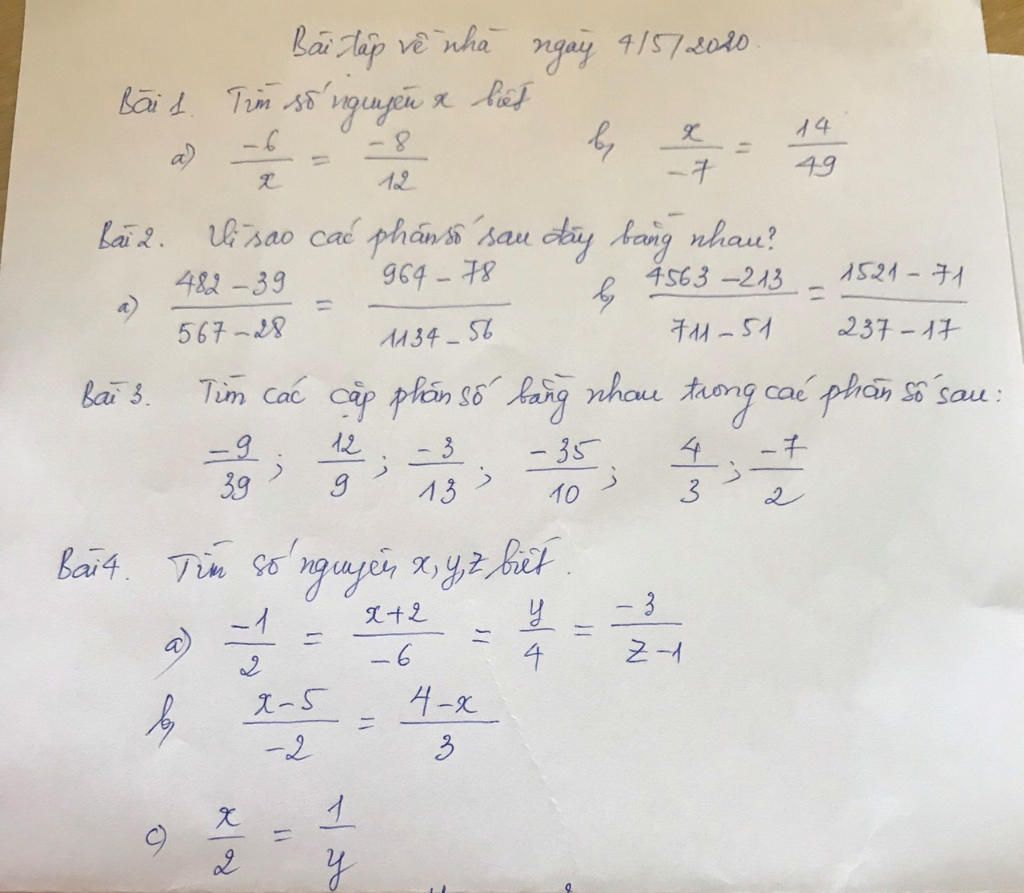 Bài tập về nhà ngày 4/5/2020.
Bài 1. Tìm số nguyên x biết
a) -6/x = -8/12 b, x/-7 = 14/49
Bài 2. Vì sao các phân số sau đây bằng nhau?
a) 482-39/567-28 = 964-78/1134-56 b, 4563-213/711-51 = 1521-71/237-17
Bài 3. Tìm các cặp phân số bằng nhau trong các phân số sau:
-9/39; 12/9; -3/13; -35/10; 4/3; -7/2
Bài 4. Tìm số nguyên x, y, z biết.
a) -1/2 = x+2/-6 = y/4 = -3/z-1
b, x-5/-2 = 4-x/3
c) x/2 = 1/y